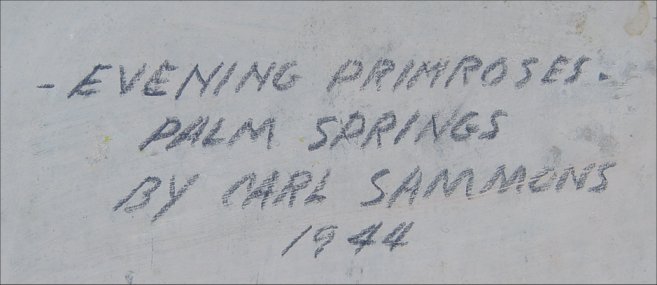 - EVENING PRIMROSES -
PALM SPRINGS
BY CARL SAMMONS
1944